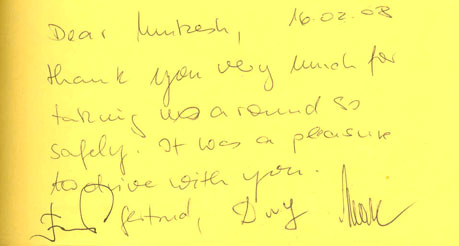 Dear Mukesh, 16.02.08
thank you very much for
taking us around so
safely. It was a pleasure
to drive with you.
Gertrud,